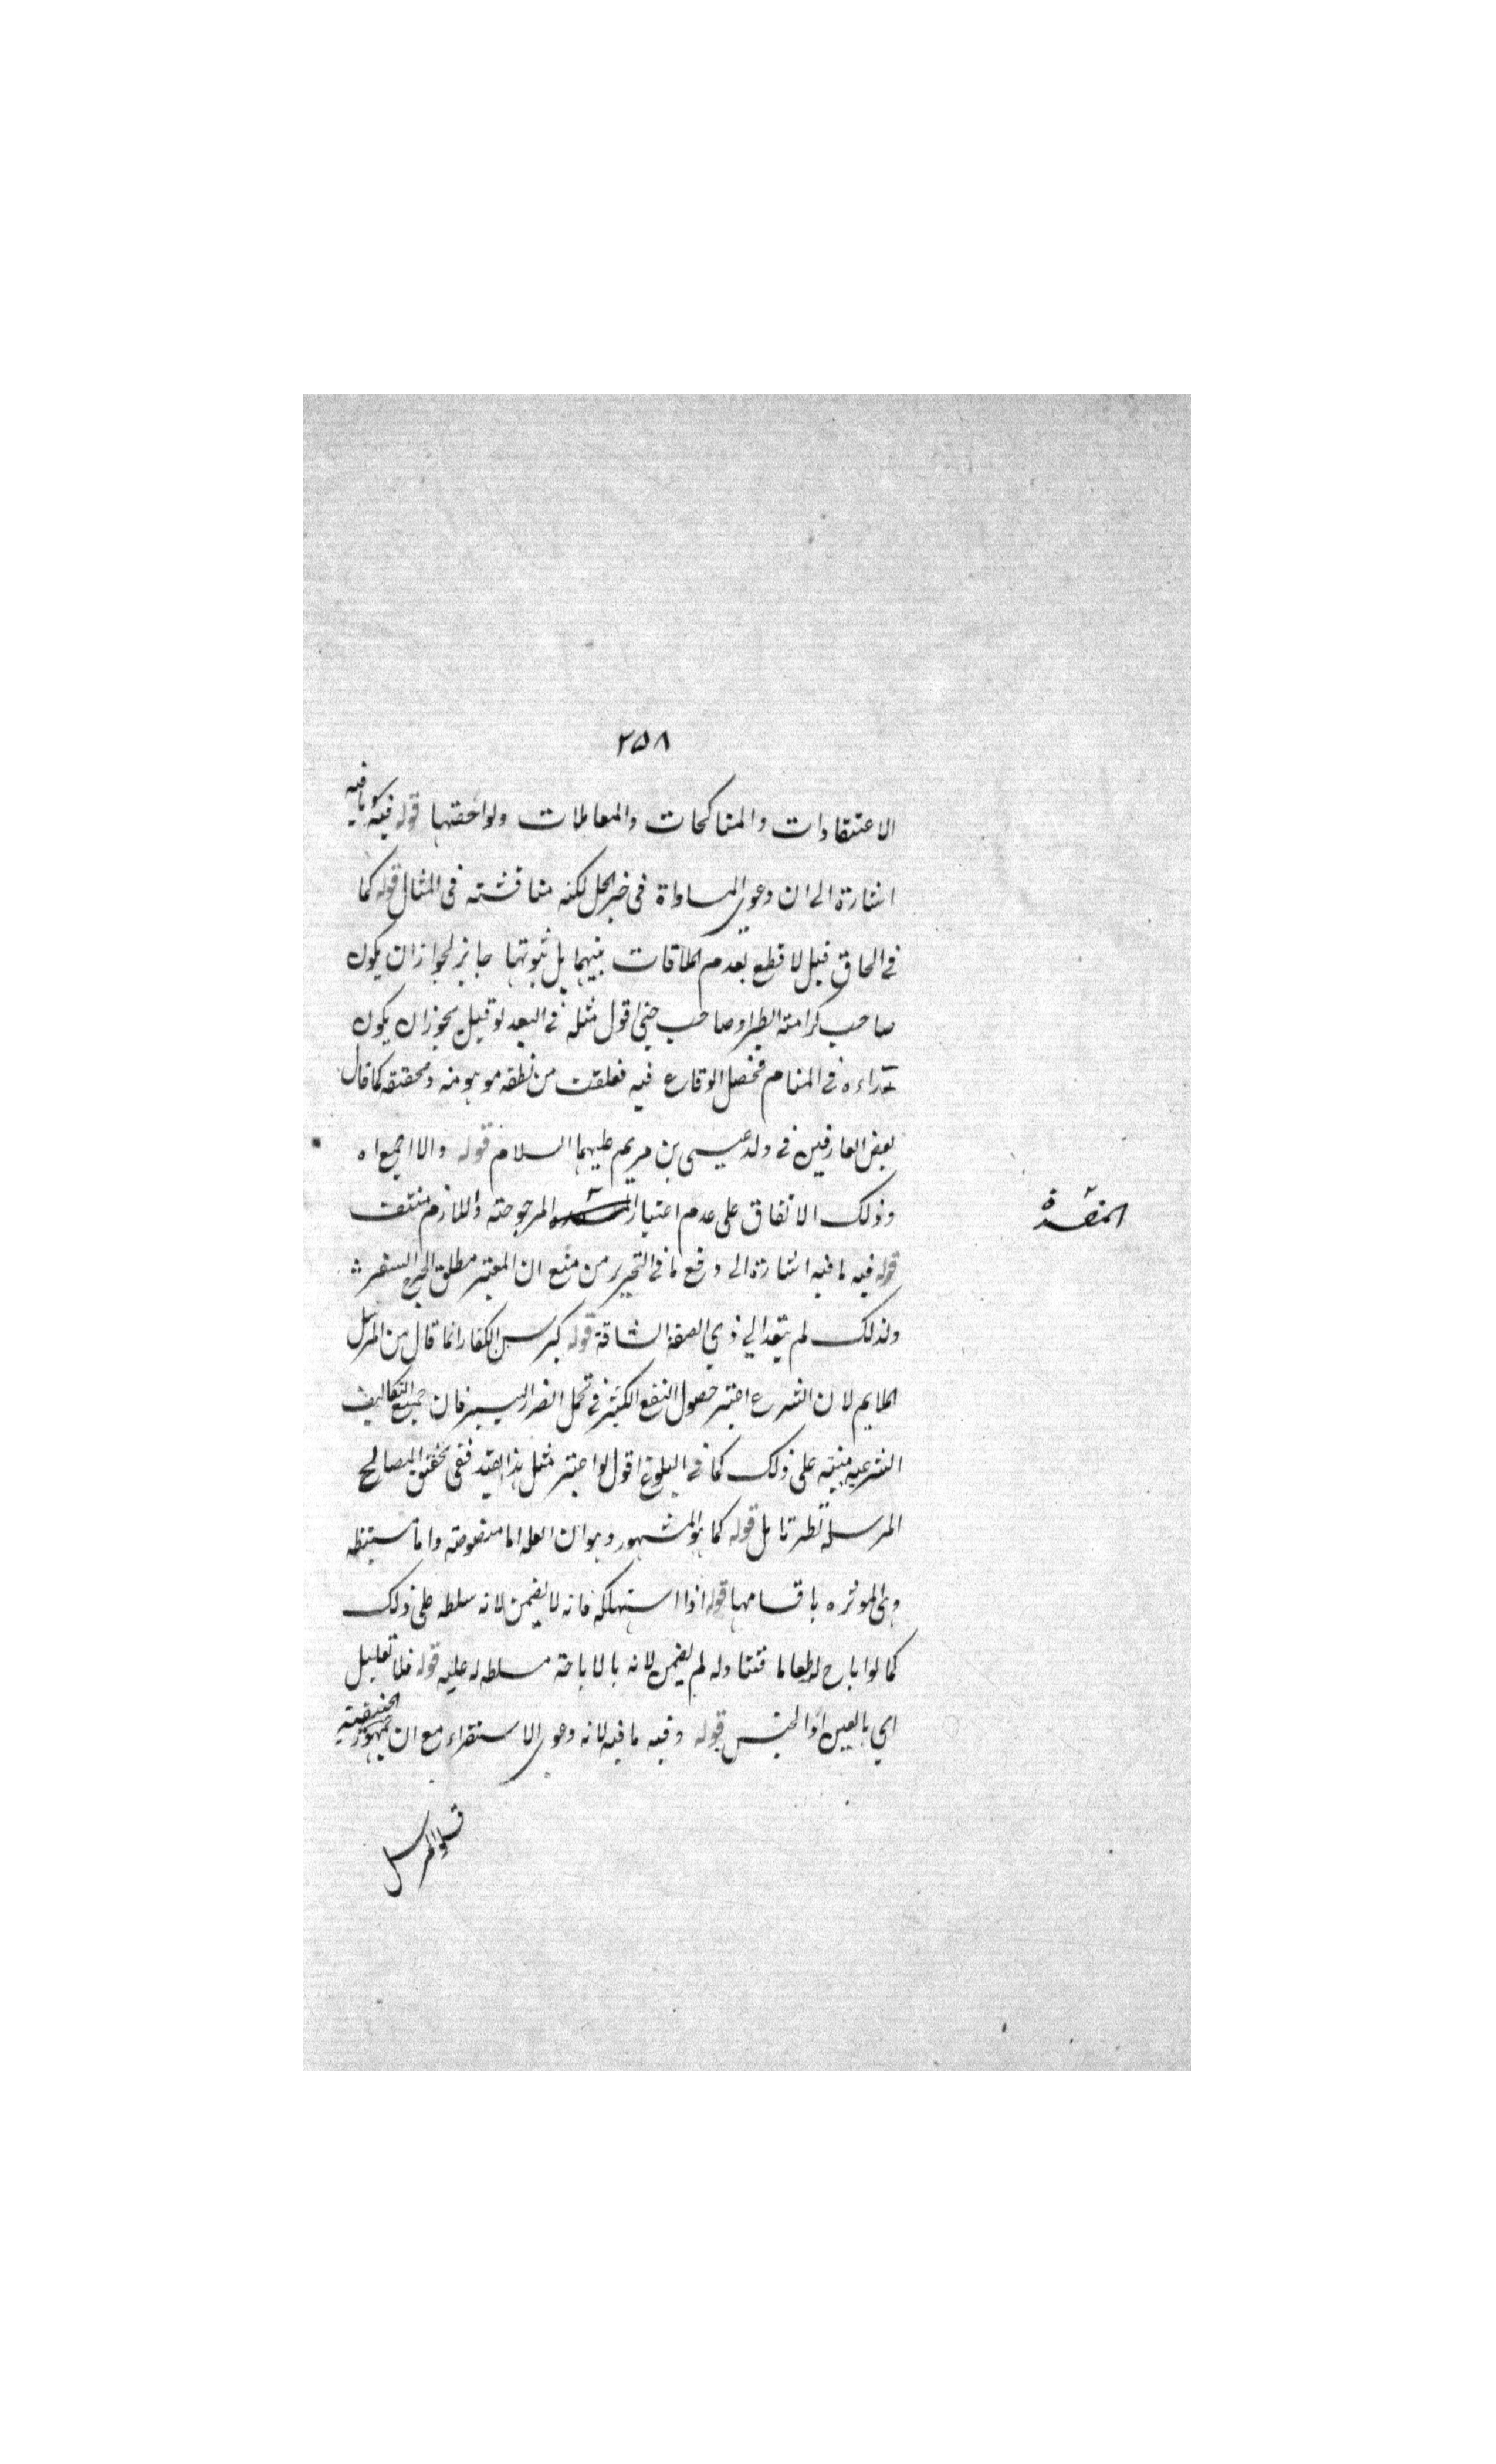 ٢٥٨
الاعتقادات والمناكحات والمعاملات ولواحقها قوله فيه ما فيه
اشارة الى ان دعوى المساواة فى خير الحل لكنه مناقشته فى المثال قوله كما
فى الحاق قيل لا قطع بعدم الملاقات بينهما بل ثبوتها جايز لجواز ان يكون
صاحب كرامته الطير او صاحب جنى اقول مثله فى البعد لو قيل يجوز ان يكون
تراءه فى المنام فحصل الوقاع فيه فعلقت من نطقه موهومه ومحققه كما قال
بعض العارفين فى ولد عيسى بن مريم عليهما السلام قوله والا اجمعا ه
وذلك الاتفاق على عدم اعتبار المرجوحته واللازم منتف
المفسدة
قوله فيه ما فيه اشارة الى دفع ما فى التحرير من منع ان المعتبر مطلق السفر
ولذلك لم يتعد الي ذي الصفة الشاقة قوله كبرسن الكفار انما قال من المرسل
الملايم لان الشرع اعتبر حصول النفع الكثير فى تحمل الضرر اليسير فان جميع التكاليف
الشرعيه مبنيته على ذلك كما فى البلوغ اقول لو اعتبر مثل هذا القيد ففى تحقق المصالح
المرسله نظر تامل قوله كما هو المشهور وهو ان العله اما منصوصته واما مستنبطه
وهى الموثره باقسامها قوله اذا استهلكه فانه لا يضمن لانه سلطه على ذلك
كما لو اباح له طعاما فتناوله لم يضمن لانه بالاباحته مسلطه له عليه قوله فلا تعليل
اي بالعين او الجنس قوله وفيه ما فيه لانه دعوى الاستقراء مع ان جمهور الحنيفيته
قوله المرسل